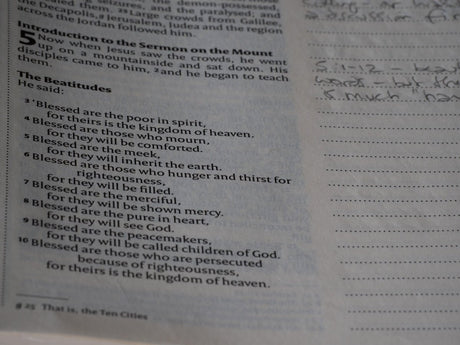 the demon-possessed,
and the paralysed; and
them. 25 Large crowds from Galilee,
Jerusalem, Judea and the region
across the Jordan followed him.
Introduction to the Sermon on the Mount
5 Now when Jesus saw the crowds, he went
up on a mountainside and sat down. His
disciples came to him, 2 and he began to teach
them.
The Beatitudes
He said:
3 'Blessed are the poor in spirit,
for theirs is the kingdom of heaven.
4 Blessed are those who mourn,
for they will be comforted.
5 Blessed are the meek,
for they will inherit the earth.
6 Blessed are those who hunger and thirst for
righteousness,
for they will be filled.
7 Blessed are the merciful,
for they will be shown mercy.
8 Blessed are the pure in heart,
for they will see God.
9 Blessed are the peacemakers,
for they will be called children of God.
10 Blessed are those who are persecuted
because of righteousness,
for theirs is the kingdom of heaven.
a 25 That is, the Ten Cities
5:1-12 -
much